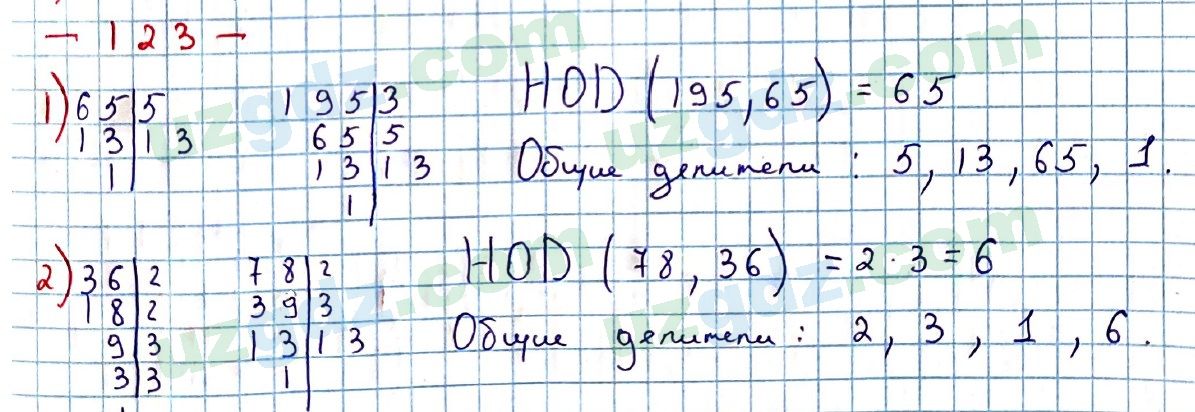 - 123 -
1) 65|5 195|3 НОД (195, 65) = 65
13|13 65|5 Общие делители : 5, 13, 65, 1.
1| 13|13
1|
2) 36|2 78|2 НОД (78, 36) = 2 · 3 = 6
18|2 39|3
9|3 13|13 Общие делители : 2, 3, 1, 6.
3|3 1|
uzgdz.com
uzgdz.com
uzgdz.com
uzgdz.com